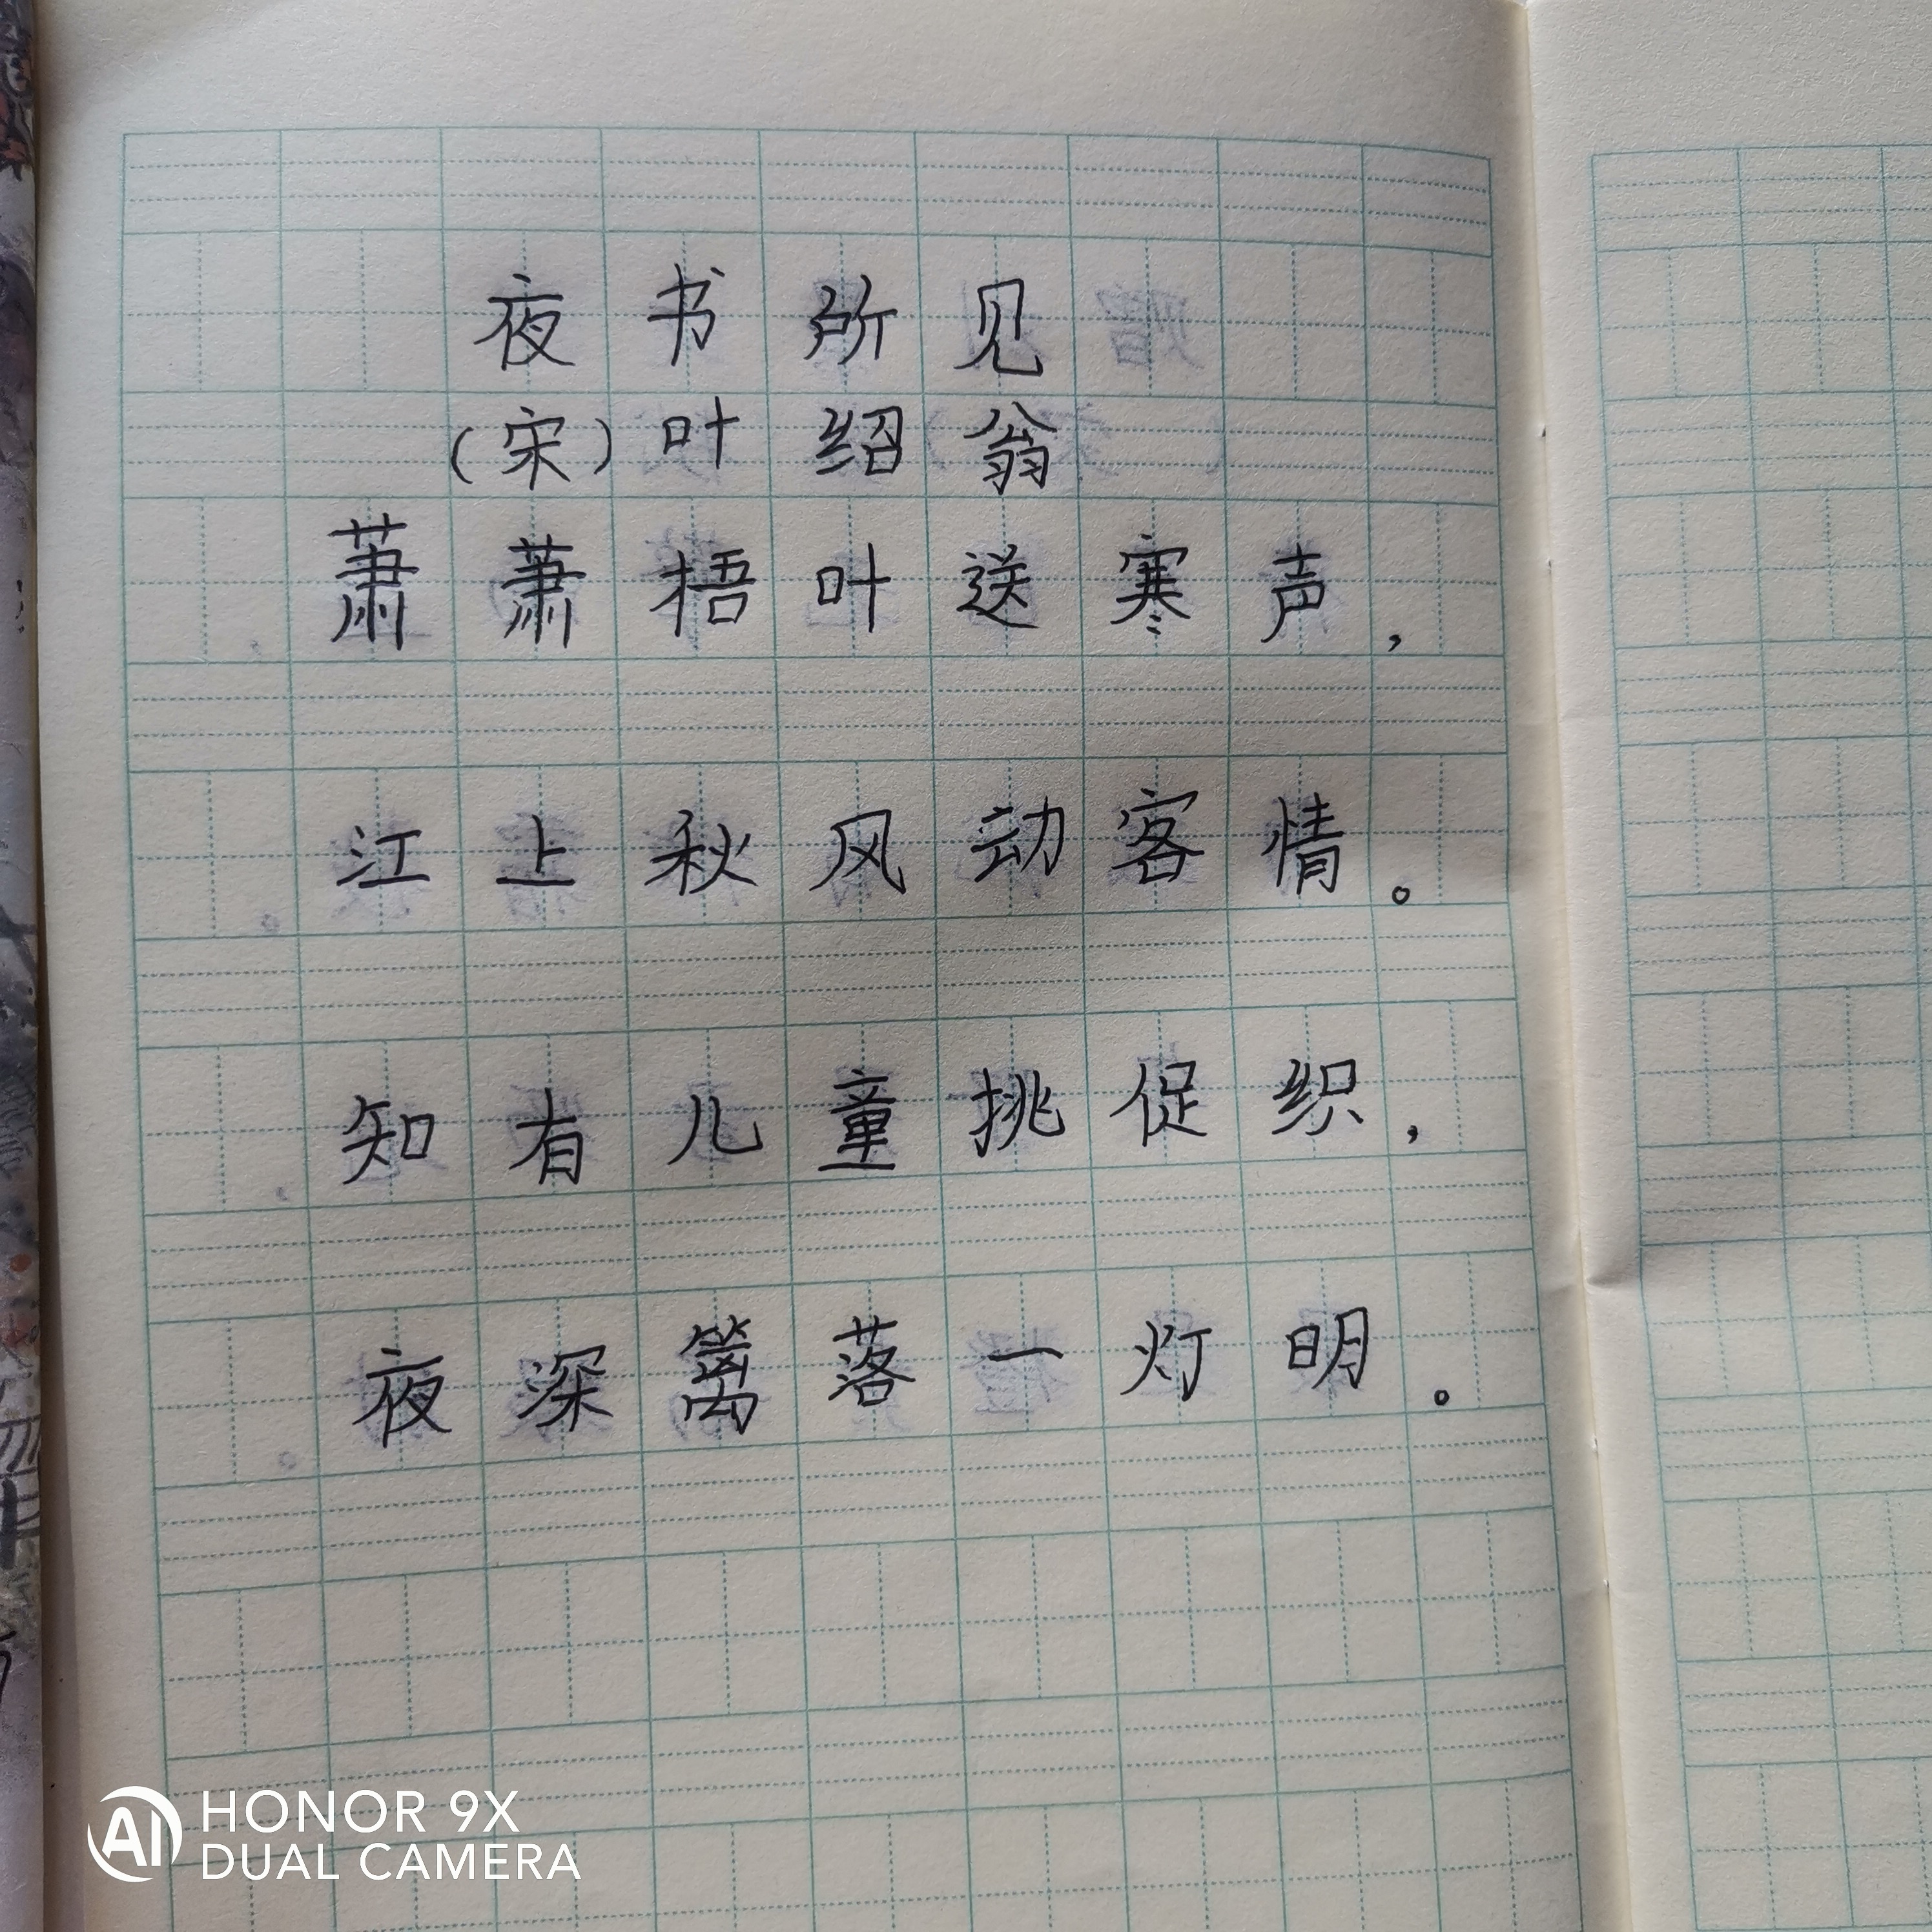 夜书所见
（宋）叶绍翁
萧萧梧叶送寒声，
江上秋风动客情。
知有儿童挑促织，
夜深篱落一灯明。
AI HONOR 9X
DUAL CAMERA